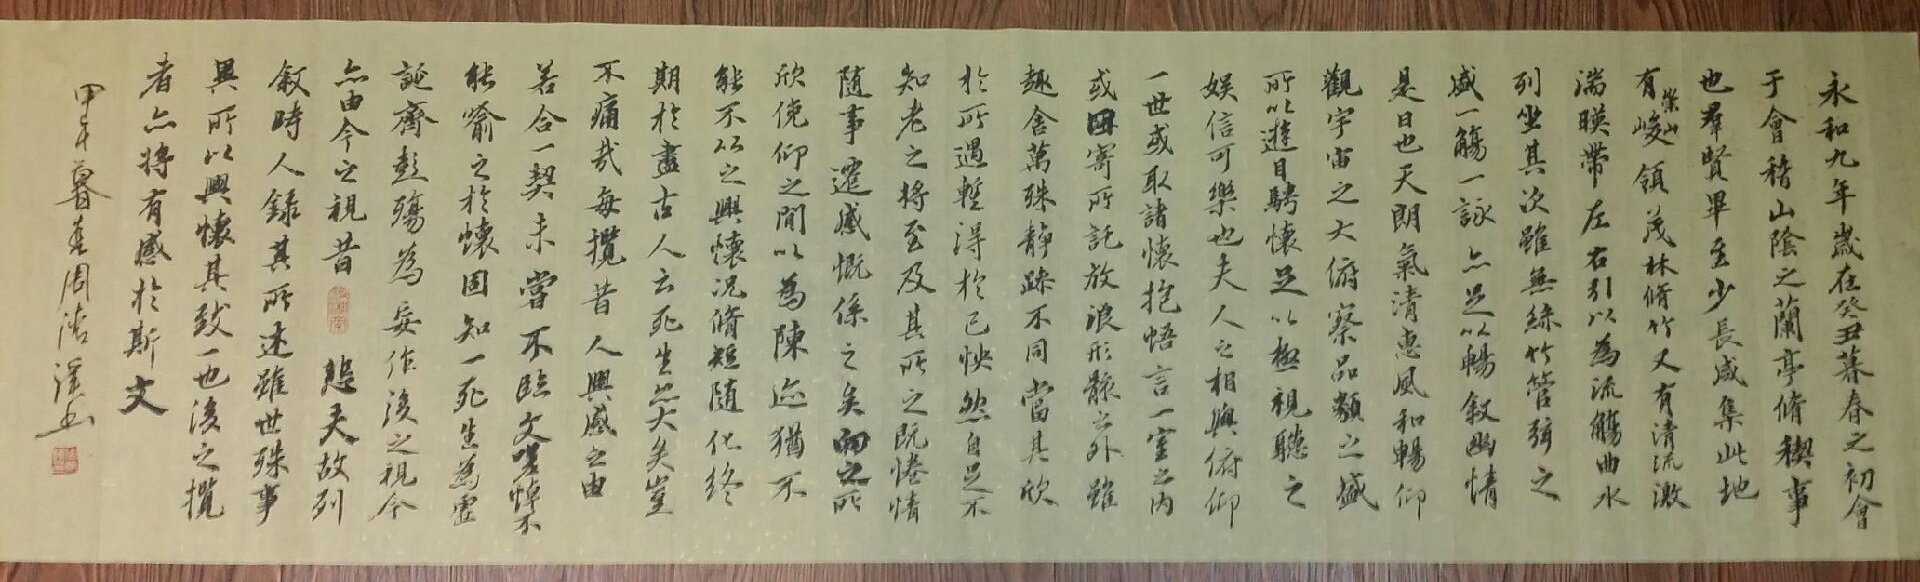 永和九年歲在癸丑暮春之初會
于會稽山陰之蘭亭脩稧事
也羣賢畢至少長咸集此地
有崇山峻領茂林脩竹又有清流激
湍暎帶左右引以為流觴曲水
列坐其次雖無絲竹管弦之
盛一觴一詠亦足以暢敘幽情
是日也天朗氣清惠風和暢仰
觀宇宙之大俯察品類之盛
所以遊目騁懷足以極視聽之
娛信可樂也夫人之相與俯仰
一世或取諸懷抱悟言一室之內
或因寄所託放浪形骸之外雖
趣舍萬殊靜躁不同當其欣
於所遇暫得於己怏然自足不
知老之將至及其所之既惓情
隨事遷感慨係之矣向之所
欣俛仰之間以為陳迹猶不
能不以之興懷況脩短隨化終
期於盡古人云死生亦大矣豈
不痛哉每攬昔人興感之由
若合一契未嘗不臨文嗟悼不
能喻之於懷固知一死生為虛
誕齊彭殤為妄作後之視今
亦由今之視昔悲夫故列
敘時人錄其所述雖世殊事
異所以興懷其致一也後之攬
者亦將有感於斯文
甲午暮春周